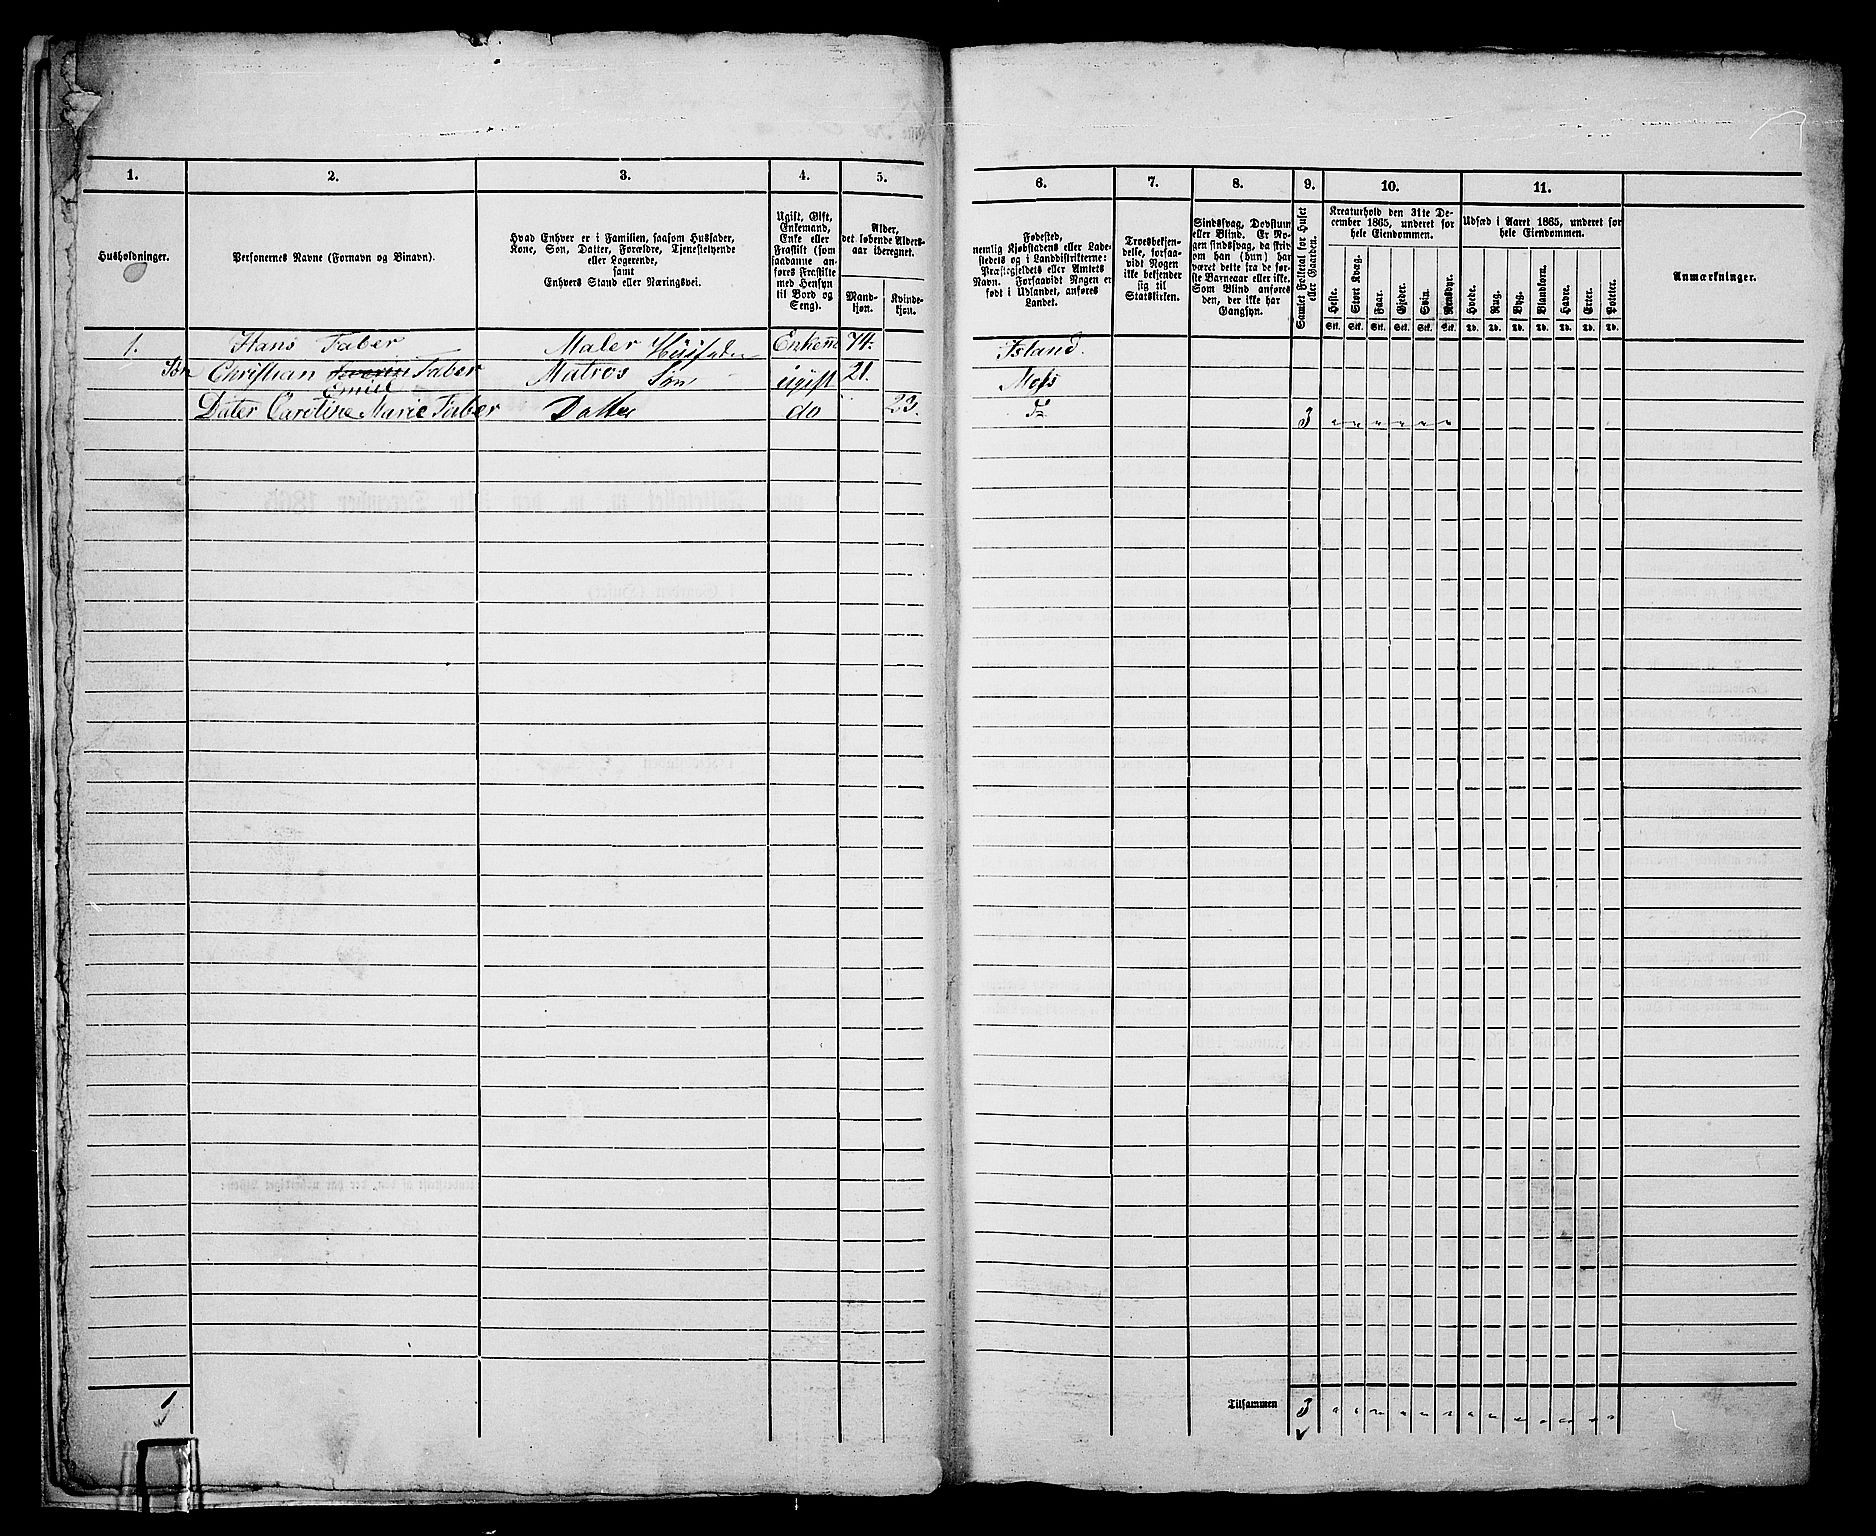 1. 2. 3. 4. 5. 6. 7. 8. 9. 10. 11.
Husholdninger.
Personernes Navne (Fornavn og Binavn).
Hvad Enhver er i Familien, saasom Husfader,
Kone, Søn, Datter, Forældre, Tjenestetyende
eller Logerende,
samt
Enhvers Stand eller Næringsvei.
Ugift, Gift,
Enkemand,
Enke eller
Fraskilt (som
saadanne an-
føres Fraskilte
med Hensyn
til Bord og
Seng).
Alder,
det løbende Alders-
aar iberegnet.
Mand-
kjøn.
Kvinde-
kjøn.
Fødested,
nemlig Kjøbstadens eller Lade-
stedets og i Landdistrikterne:
Præstegjeldets eller Amtets
Navn. Forsaavidt Nogen er
født i Udlandet, anføres
Landet.
Troesbekjen-
delse, forsaa-
vidt Nogen
ikke bekjender
sig til
Statskirken.
Sindssvag, Døvstum
eller Blind. Er No-
gen sindssvag, da skriv
om han (hun) har
været dette fra de før-
ste Barneaar eller ikke.
Som Blind anføres
den, der ikke har
Gangsyn.
Samlet Folketal for Huset
eller Gaarden.
Kreaturhold den 31te De-
cember 1865, underet for
hele Eiendommen.
Heste.
Stort Kvæg.
Faar.
Gjeder.
Svin.
Rensdyr.
Stk. Stk. Stk. Stk. Stk. Stk.
Udsæd i Aaret 1865, underet for
hele Eiendommen.
Hvede.
Rug.
Byg.
Blandkorn.
Havre.
Erter.
Poteter.
Anmærkninger.
1. Hans Faber Maler Husfader Enkem 74. Island.
Søn Christian Faber Matros Søn ugift 21. Moss
Emiel
Dater Caroline Marie Faber Datter do 23. do 3
1
Tilsammen 3